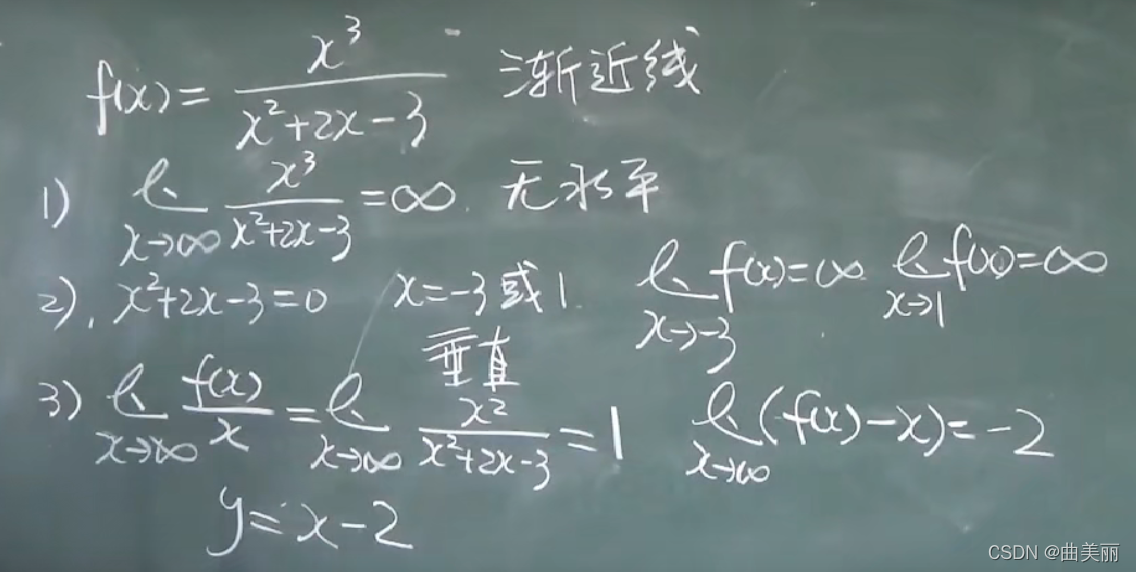 f(x) = x³/(x²+2x-3) 渐近线
1) lim x→∞ x³/(x²+2x-3) = ∞. 无水平
2), x²+2x-3=0 x=-3或1. 垂直 lim x→-3 f(x)=∞ lim x→1 f(x)=∞
3) lim x→∞ f(x)/x = lim x→∞ x²/(x²+2x-3) = 1 lim x→∞ (f(x)-x)=-2
y=x-2
CSDN @曲美丽